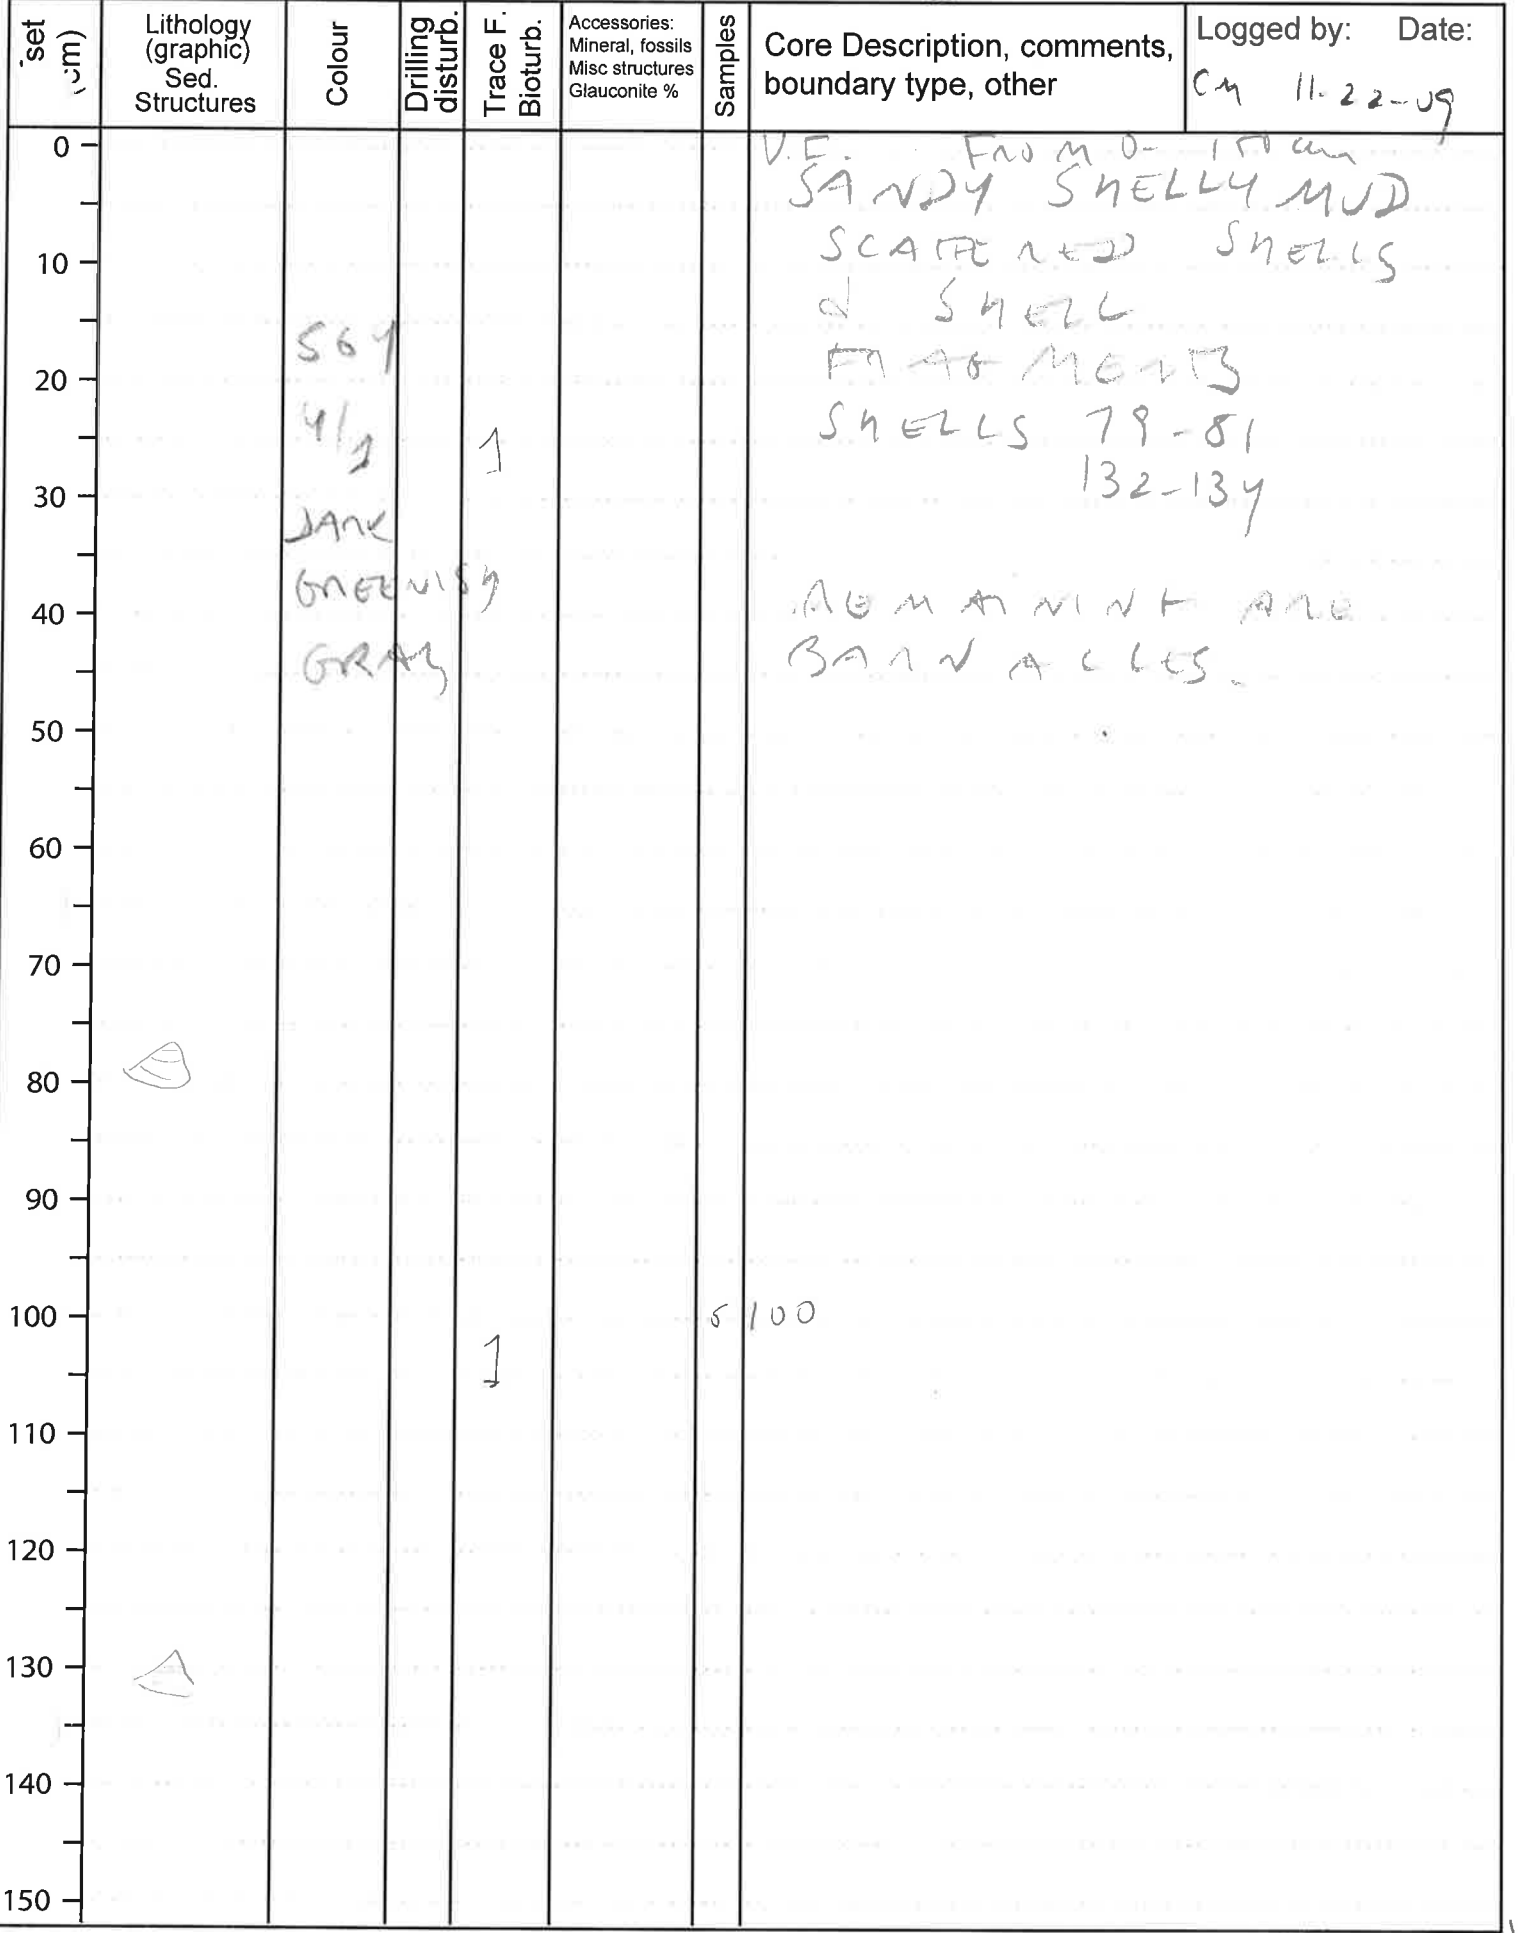 set
cm)
Lithology
(graphic)
Sed.
Structures
Colour
Drilling
disturb.
Trace F.
Bioturb.
Accessories:
Mineral, fossils
Misc structures
Glauconite %
Samples
Core Description, comments,
boundary type, other
Logged by: Date:
CM 11-22-09
0
10
20
30
40
50
60
70
80
90
100
110
120
130
140
150
5GY
4/1
DARK
GREENISH
GRAY
1
1
S 100
V.F. FROM 0- 150 cm
SANDY SHELLY MUD
SCATTERED SHELLS
& SHELL
FRAGMENTS
SHELLS 79-81
132-134
REMAINING ARE
BARNACLLES.